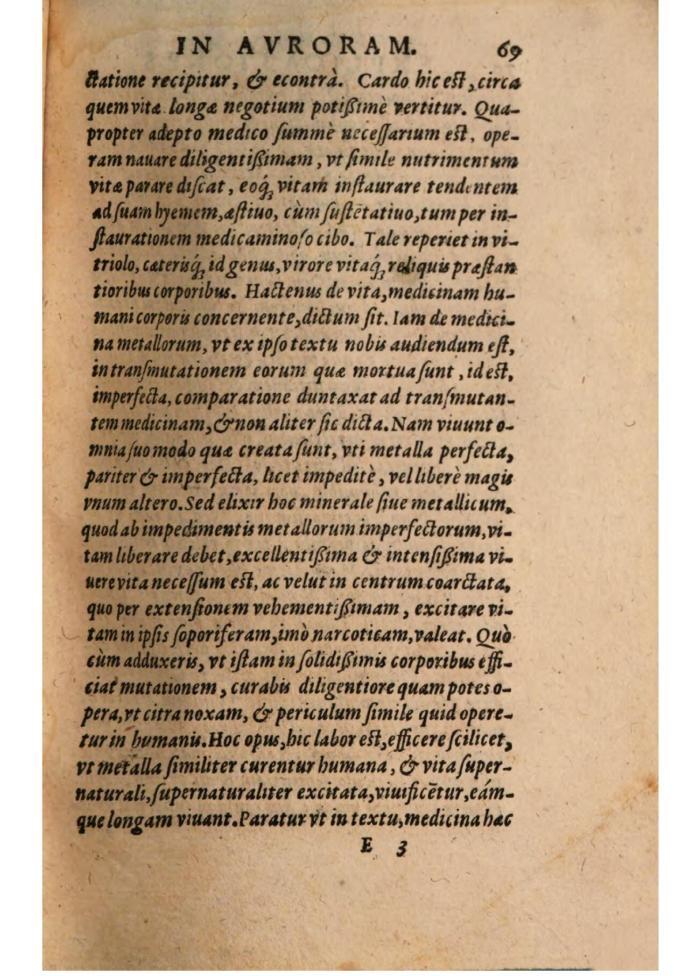 IN AVRORAM. 69
ctatione recipitur, & econtrà. Cardo hic est, circa
quem vitæ longæ negotium potißimè vertitur. Qua-
propter adepto medico summè necessarium est, ope-
ram nauare diligentißimam, vt simile nutrimentum
vitæ parare discat, eoq́; vitam instaurare tendentem
ad suam hyemem, æstiuo, cùm sustētatiuo, tum per in-
staurationem medicaminoso cibo. Tale reperiet in vi-
triolo, cæterisq́; id genus, virore vitaq́; reliquis præstan
tioribus corporibus. Hactenus de vita, medicinam hu-
mani corporis concernente, dictum sit. Iam de medici-
na metallorum, vt ex ipso textu nobis audiendum est,
in transmutationem eorum quæ mortua sunt, id est,
imperfecta, comparatione duntaxat ad transmutan-
tem medicinam, & non aliter sic dicta. Nam viuunt o-
mnia suo modo quæ creata sunt, vti metalla perfecta,
pariter & imperfecta, licet impeditè, vel liberè magis
vnum altero. Sed elixir hoc minerale siue metallicum,
quod ab impedimentis metallorum imperfectorum, vi-
tam liberare debet, excellentißima & intensißima vi-
uere vita necessum est, ac velut in centrum coarctata,
quo per extensionem vehementißimam, excitare vi-
tam in ipsis soporiferam, imò narcoticam, valeat. Quò
cùm adduxeris, vt istam in solidißimis corporibus effi-
ciat mutationem, curabis diligentiore quam potes o-
pera, vt citra noxam, & periculum simile quid opere-
tur in humanis. Hoc opus, hic labor est, efficere scilicet,
vt metalla similiter curentur humana, & vita super-
naturali, supernaturaliter excitata, viuificētur, eám-
que longam viuant. Paratur vt in textu, medicina hæc
E 3